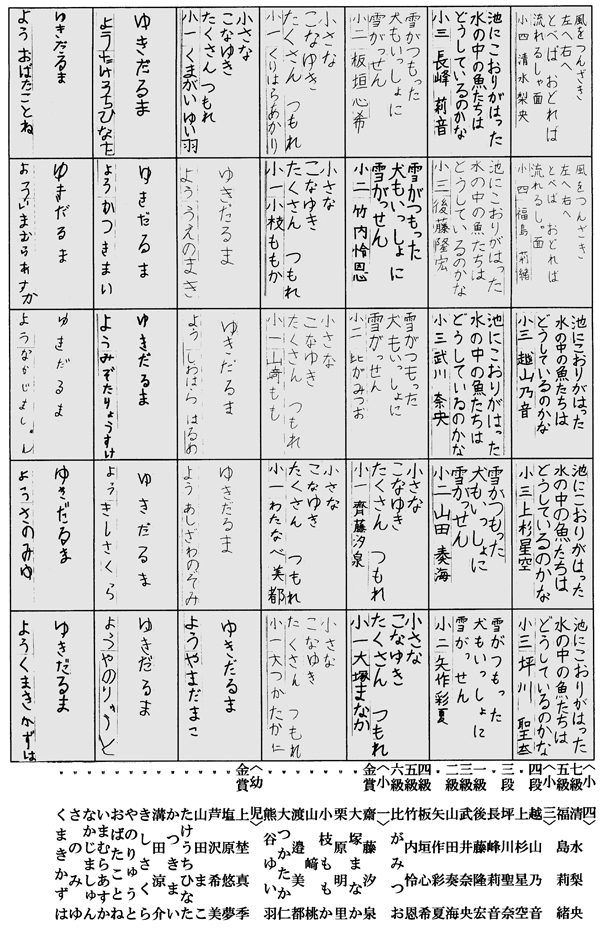 風をつんざき
左へ右へ
とべば おどれば
流れるしゃ面
小四 清水梨央
池にこおりがはった
水の中の魚たちは
どうしているのかな
小三 長峰 莉音
雪がつもった
犬もいっしょに
雪がっせん
小二 板垣心希
小さな
こなゆき
たくさん つもれ
小一 くりはらあかり
小さな
こなゆき
たくさん つもれ
小一 くまがいゆい羽
ゆきだるま
ようたけうちひなた
ゆきだるま
よう おばたことね
風をつんざき
左へ右へ
とべば おどれば
流れるし。面
小四 福島 莉緒
池にこおりがはった
水の中の魚たちは
どうしているのかな
小三 後藤隆宏
雪がつもった
犬もいっしょに
雪がっせん
小二 竹内怜恩
小さな
こなゆき
たくさん つもれ
小一 小枝ももか
ゆきだるま
よう うえのまき
ゆきだるま
ようかつきまい
ゆきだるま
よういまむらあすか
池にこおりがはった
水の中の魚たちは
どうしているのかな
小三 越山乃音
池にこおりがはった
水の中の魚たちは
どうしているのかな
小三 武川 奈央
雪がつもった
犬もいっしょに
雪がっせん
小二 比がみつお
小さな
こなゆき
たくさん つもれ
小一 山崎もも
ゆきだるま
よう しのはら はるめ
ゆきだるま
ようみぞたりょうすけ
ゆきだるま
ようなかじましゅん
池にこおりがはった
水の中の魚たちは
どうしているのかな
小三上杉星空
雪がつもった
犬もいっしょに
雪がっせん
小二 山田 奏海
小さな
こなゆき
たくさん つもれ
小一 齊藤汐泉
小さな
こなゆき
たくさん つもれ
小一 わたなべ 美都
ゆきだるま
よう あしざわのぞみ
ゆきだるま
よう きしさくら
ゆきだるま
ようさのみゆ
池にこおりがはった
水の中の魚たちは
どうしているのかな
小三 坪川 聖奈
雪がつもった
犬もいっしょに
雪がっせん
小二 矢作彩夏
小さな
こなゆき
たくさん つもれ
小一 大塚まなか
小さな
こなゆき
たくさん つもれ
小一 大つかたかに
ゆきだるま
ようやまだまこ
ゆきだるま
ようやのりゅうと
ゆきだるま
ようくまきかずは
〈小四〉
七級 清水梨央
五級 福島莉
〈小三〉
四段 越山乃音
〃 上杉星空
三段 坪川聖奈
〃 長峰莉音
一級 後藤隆宏
〃 武 奈央
山田奏海
矢作彩夏
板垣心希
竹内怜恩
六級 比がみつお
〈小一〉
金賞 齋藤汐泉
〃 大塚まなか
〃 栗原明か里
〃 小枝ももか
〃 山﨑桃
〃 渡邉美都
〃 大つかたか仁
〃 熊谷ゆい羽
〈幼児〉
金賞 上埜真季
〃 塩原悠夢
〃 芦沢希実
〃 山田まこ
〃 たけうちひなた
〃 かつきまい
〃 溝田涼介
〃 きしさくら
〃 やのりゅうと
〃 おばたことね
〃 いまむらあすか
〃 なかじましゅん
〃 さのみゆ
〃 くまきかずは